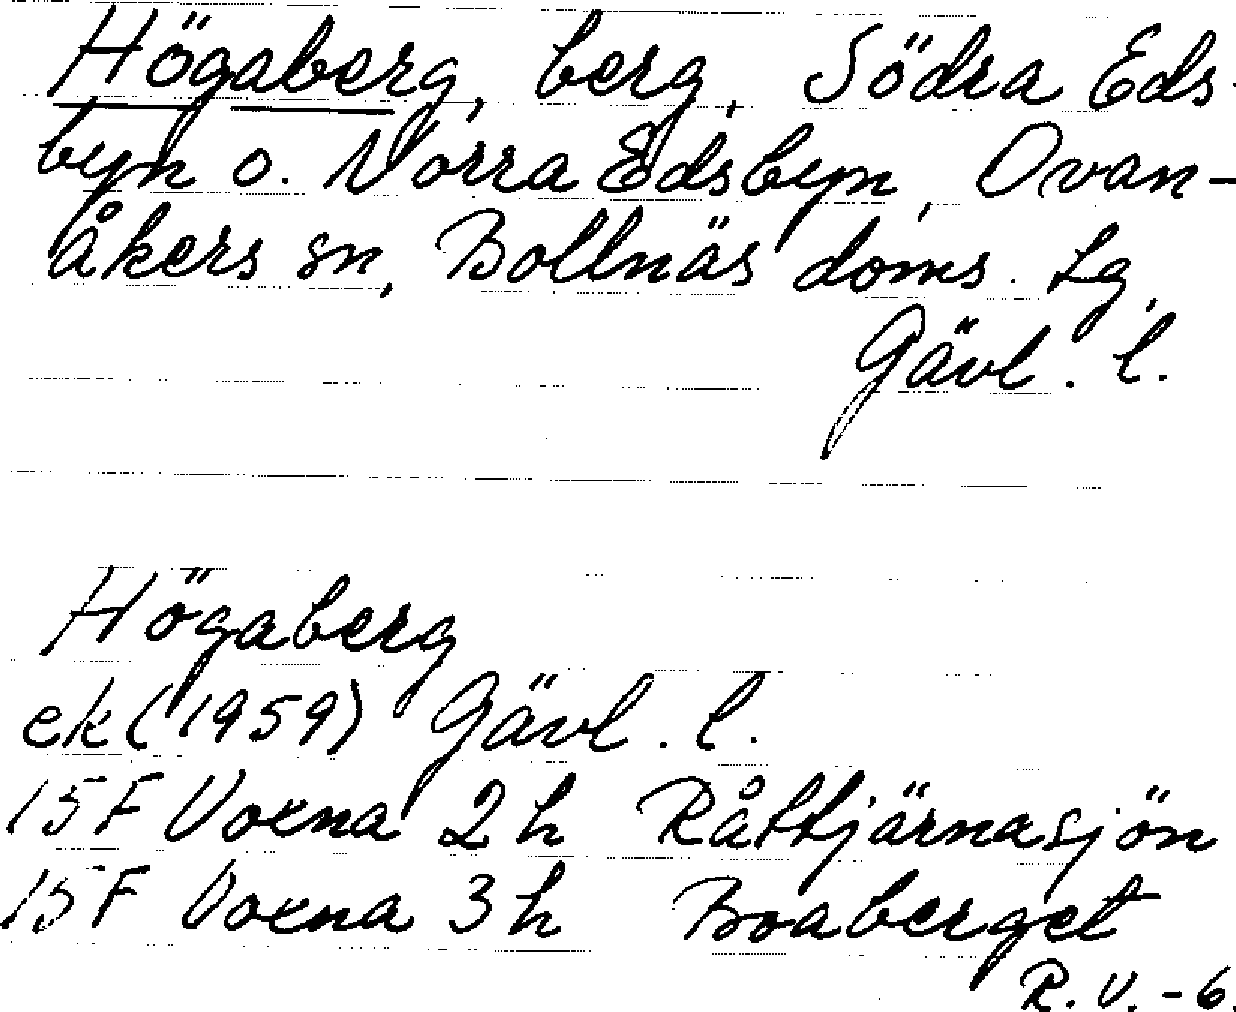 Högaberg, berg, Södra Eds-
byn o. Norra Edsbyn, Ovan-
åkers sn, Bollnäs doms. lg,
Gävl. l.
Högaberg
ek (1959) Gävl. l.
15 F Voxna 2 h Råttjärnasjön
15 F Voxna 3 h Boaberget
R. V. - 6.